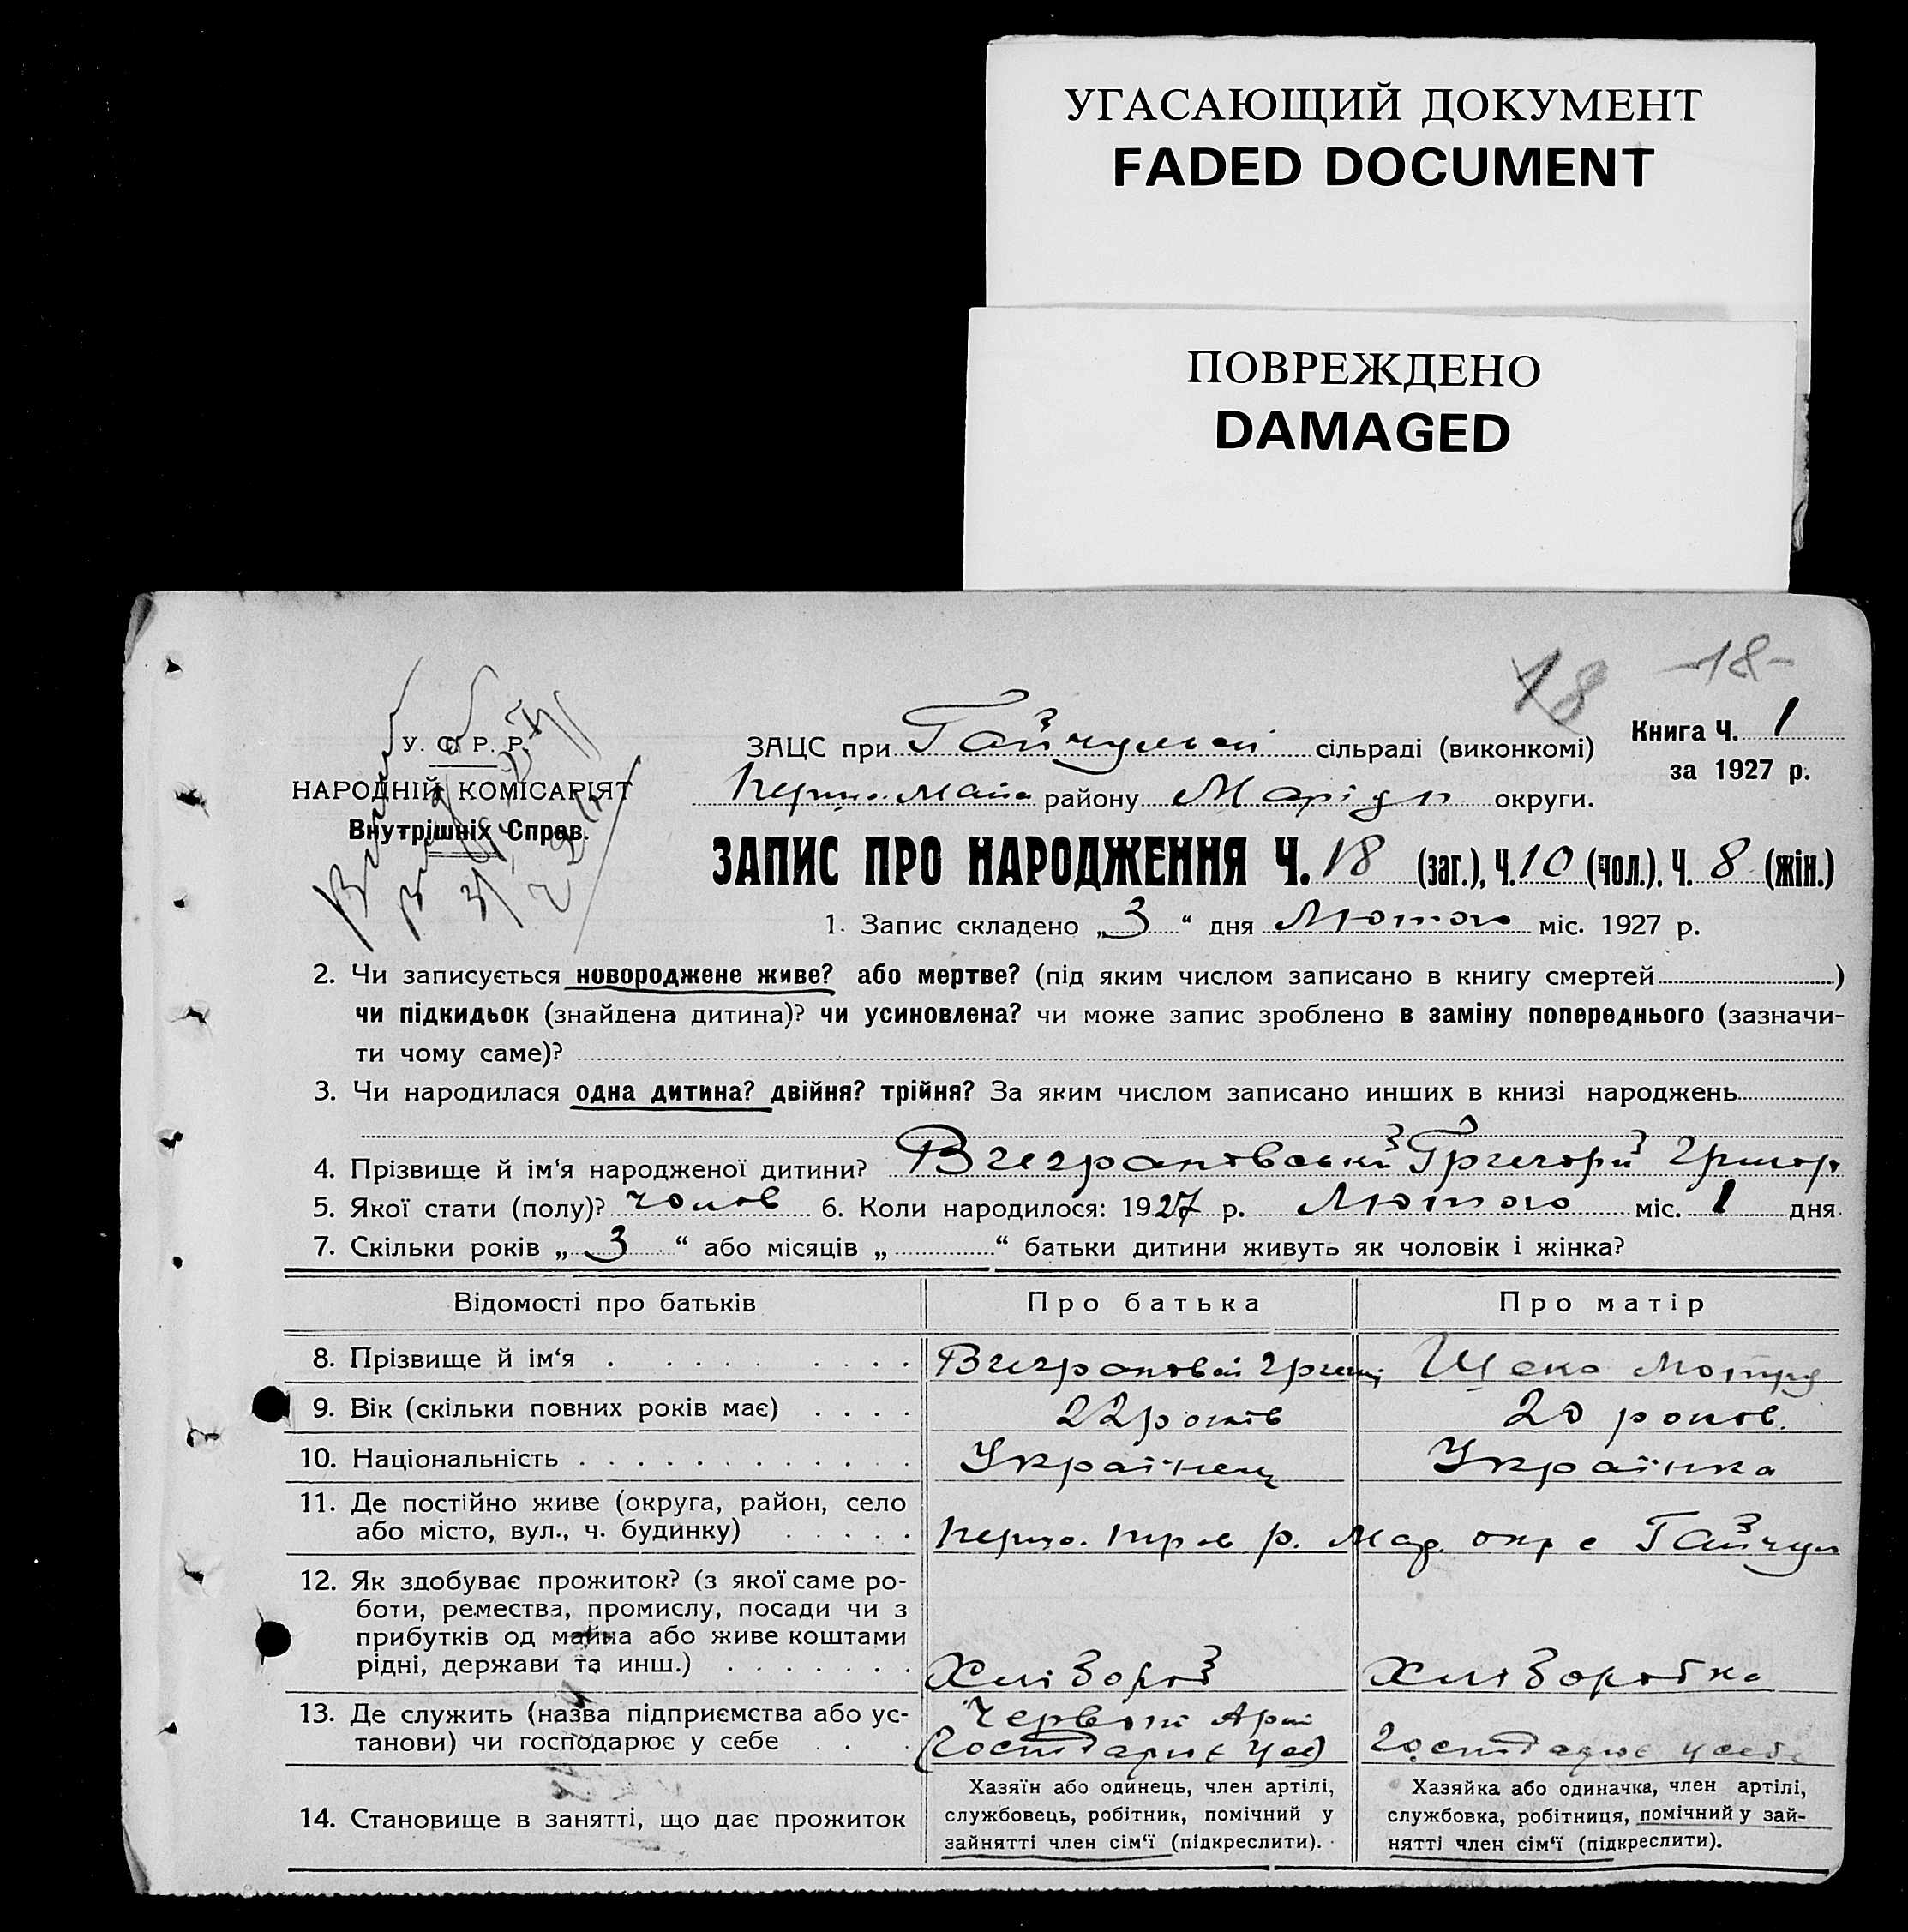 УГАСАЮЩИЙ ДОКУМЕНТ
FADED DOCUMENT
ПОВРЕЖДЕНО
DAMAGED
18 -18-
У. С. Р. Р.
НАРОДНІЙ КОМІСАРІЯТ
Внутрішніх Справ.
Книга Ч. 1
за 1927 р.
ЗАЦС при Гайчульскій сільраді (виконкомі)
району Маріуп округи.
ЗАПИС ПРО НАРОДЖЕННЯ Ч. 18 (заг.), Ч. 10 (чол.), Ч. 8 (жін.)
1. Запис складено „3“ дня Лютого міс. 1927 р.
2. Чи записується новороджене живе? або мертве? (під яким числом записано в книгу смертей )
чи підкидьок (знайдена дитина)? чи усиновлена? чи може запис зроблено в заміну попереднього (зазначи-
ти чому саме)?
3. Чи народилася одна дитина? двійня? трійня? За яким числом записано инших в книзі народжень
4. Прізвище й ім‘я народженої дитини? Григорій Григор
5. Якої стати (полу)? чолов 6. Коли народилося: 1927 р. Лютого міс. 1 дня.
7. Скільки років „3“ або місяців „ “ батьки дитини живуть як чоловік і жінка?
Відомості про батьків Про батька Про матір
8. Прізвище й ім‘я Мотря
9. Вік (скільки повних років має) 22 років 20 років.
10. Національність Українец Українка
11. Де постійно живе (округа, район, село
або місто, вул., ч. будинку) р. Мар. окр с Гайчул
12. Як здобуває прожиток? (з якої саме ро-
боти, ремества, промислу, посади чи з
прибутків од майна або живе коштами
рідні, держави та инш.) Хлібороб Хліборобка
13. Де служить (назва підприємства або ус- Червоній Армі
танови) чи господарює у себе (Господарює у себ) Господарює у себе
14. Становище в занятті, що дає прожиток
Хазяїн або одинець, член артілі,
службовець, робітник, помічний у
зайнятті член сім‘ї (підкреслити).
Хазяйка або одиначка, член артілі,
службовка, робітниця, помічний у зай-
нятті член сім‘ї (підкреслити).